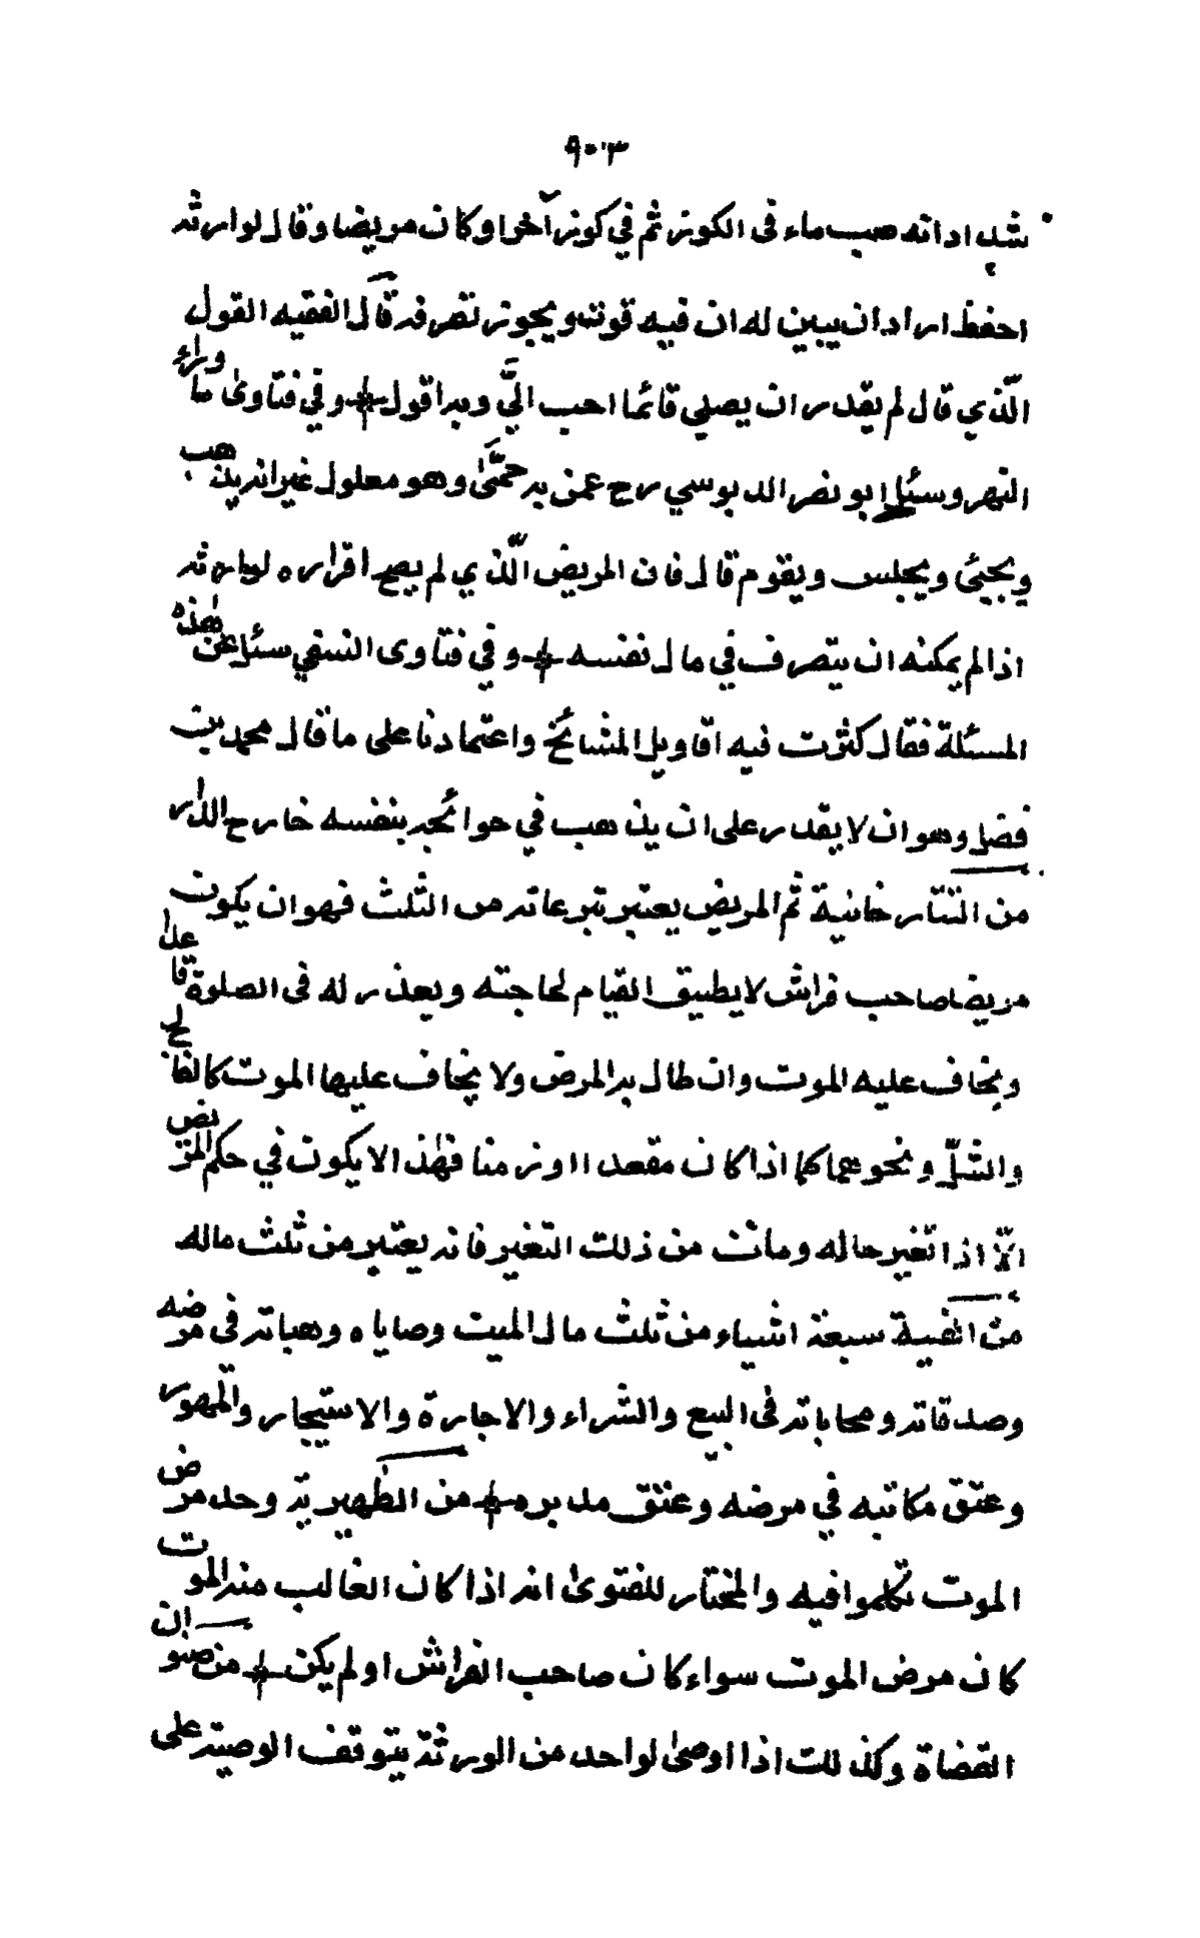 ٩٠٣
شداد انه صب ماء فى الكوز ثم في كوز آخر او كان مريضا وقال لوارثه
احفظ اراد ان يبين له ان فيه قوته ويجوز تصرفه قال الفقيه القول
الّذي قال لم يقدر ان يصلي قائما احب الىّ وبه اقول وفي فتاوىٰ ما وراء
النهر وسئل ابو نصر الدبوسي رح عمن به حمّىٰ وهو معلول غير انه يذهب
ويجيئ ويجلس ويقوم قال فان المريض الّذي لم يصح اقراره لوارثه
اذا لم يمكنه ان يتصرف في مال نفسه وفي فتاوى النسفي سئل عن هٰذه
المسئلة فقال كثرت فيه اقاويل المشائخ واعتمادنا على ما قال محمد بن
فضل وهو ان لا يقدر على ان يذهب في حوائجه بنفسه خارج الدار
من التتارخانية ثم المريض يعتبر تبرعاته من الثلث فهو ان يكون
مريضا صاحب فراش لا يطيق القيام لحاجته ويعذر له فى الصلوة قاعدا
ويخاف عليه الموت وان طال به المرض ولا يخاف عليها الموت كالفالج
والشلّ ونحوهما كما اذا كان مقعدا او زمنا فهٰذا لا يكون في حكم المريض
الّا اذا تغير حاله ومات من ذلك التغير فانه يعتبر من ثلث ماله
من القنية سبعة اشياء من ثلث مال الميت وصاياه وهباته فى مرضه
وصدقاته ومحاباته فى البيع والشراء والاجارة والاستيجار والمهور
وعتق مكاتبه في مرضه وعتق مدبره من الظهيرية وحد مرض
الموت تكلموا فيه والمختار للفتوىٰ انه اذا كان الغالب منه الموت
كان مرض الموت سواء كان صاحب الفراش او لم يكن من صنوان
القضاة وكذلك اذا اوصىٰ لواحد من الورثة يتوقف الوصية على